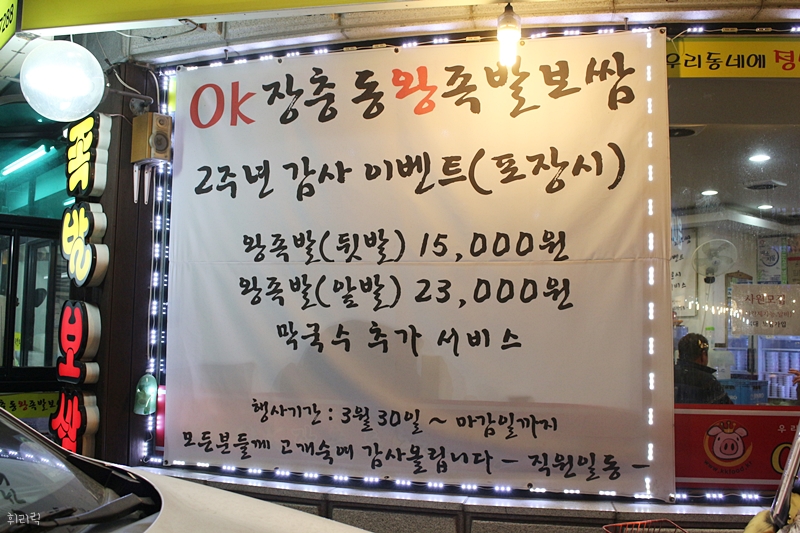 Ok 장충동왕족발보쌈
2주년 감사 이벤트(포장시)
왕족발(뒷발) 15,000원
왕족발(앞발) 23,000원
막국수 추가 서비스
행사기간 : 3월 30일 ~ 마감일까지
모든분들께 고개숙여 감사올립니다 - 직원일동 -
족발보쌈
우리동네에
사원모집
휘리릭